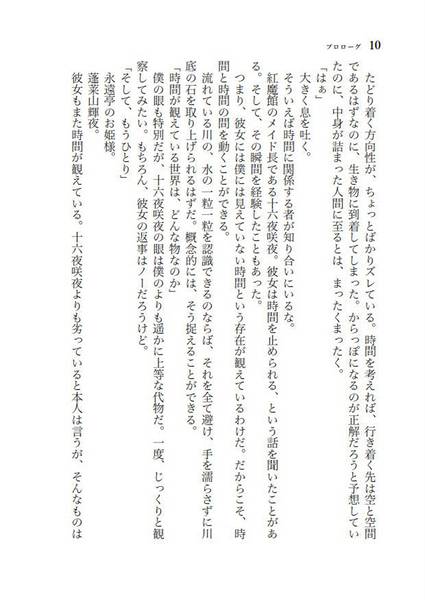 プロローグ 10
たどり着く方向性が、ちょっとばかりズレている。時間を考えれば、行き着く先は空と空間
であるはずなのに、生き物に到着してしまった。からっぽになるのが正解だろうと予想してい
たのに、中身が詰まった人間に至るとは、まったくまったく。
「はぁ」
大きく息を吐く。
そういえば時間に関係する者が知り合いにいるな。
紅魔館のメイド長である十六夜咲夜。彼女は時間を止められる、という話を聞いたことがあ
る。そして、その瞬間を経験したこともあった。
つまり、彼女には僕には見えていない時間という存在が観えているわけだ。だからこそ、時
間と時間の間を動くことができる。
流れている川の、水の一粒一粒を認識できるのならば、それを全て避け、手を濡らさずに川
底の石を取り上げられるはずだ。概念的には、そう捉えることができる。
「時間が観えている世界は、どんな物なのか」
僕の眼も特別だが、十六夜咲夜の眼は僕のよりも遥かに上等な代物だ。一度、じっくりと観
察してみたい。もちろん、彼女の返事はノーだろうけど。
「そして、もうひとり」
永遠亭のお姫様。
蓬莱山輝夜。
彼女もまた時間が観えている。十六夜咲夜よりも劣っていると本人は言うが、そんなものは